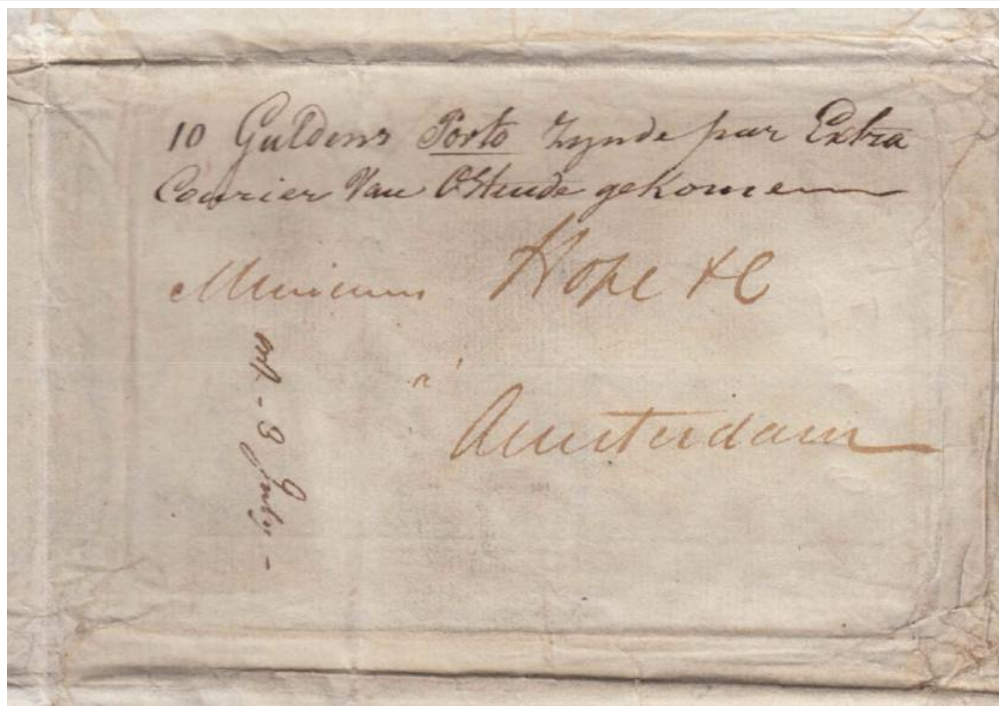 10 Guldens Porto Zynde par Extra
Courier Van Ostende gekomen
Messieurs Hope & C
a'
Amsterdam
3 July -